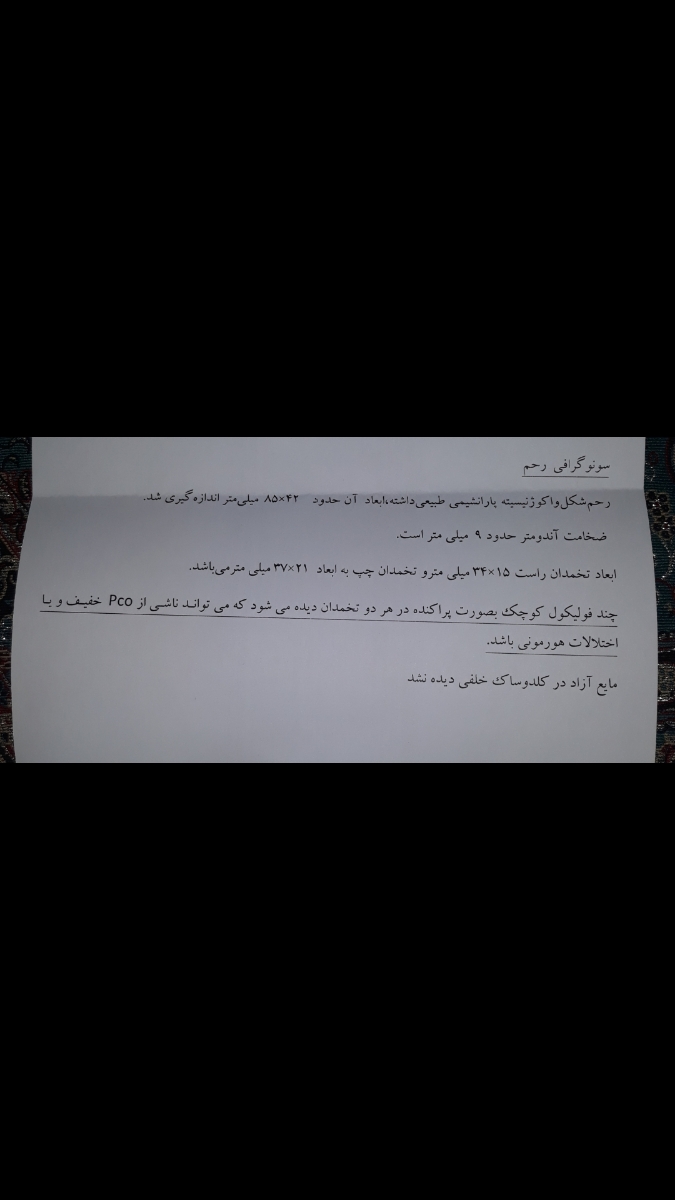 سونوگرافی رحم
رحم‌شکل‌واکوژنیسیته پارانشیمی طبیعی‌داشته،ابعاد آن حدود ۸۵×۴۲ میلی‌متر اندازه‌گیری شد.
ضخامت آندومتر حدود ۹ میلی متر است.
ابعاد تخمدان راست ۱۵×۳۴ میلی مترو تخمدان چپ به ابعاد ۲۱×۳۷ میلی مترمی‌باشد.
چند فولیکول کوچک بصورت پراکنده در هر دو تخمدان دیده می شود که می تواند ناشی از Pco خفیف و یا
اختلالات هورمونی باشد.
مایع آزاد در کلدوساک خلفی دیده نشد